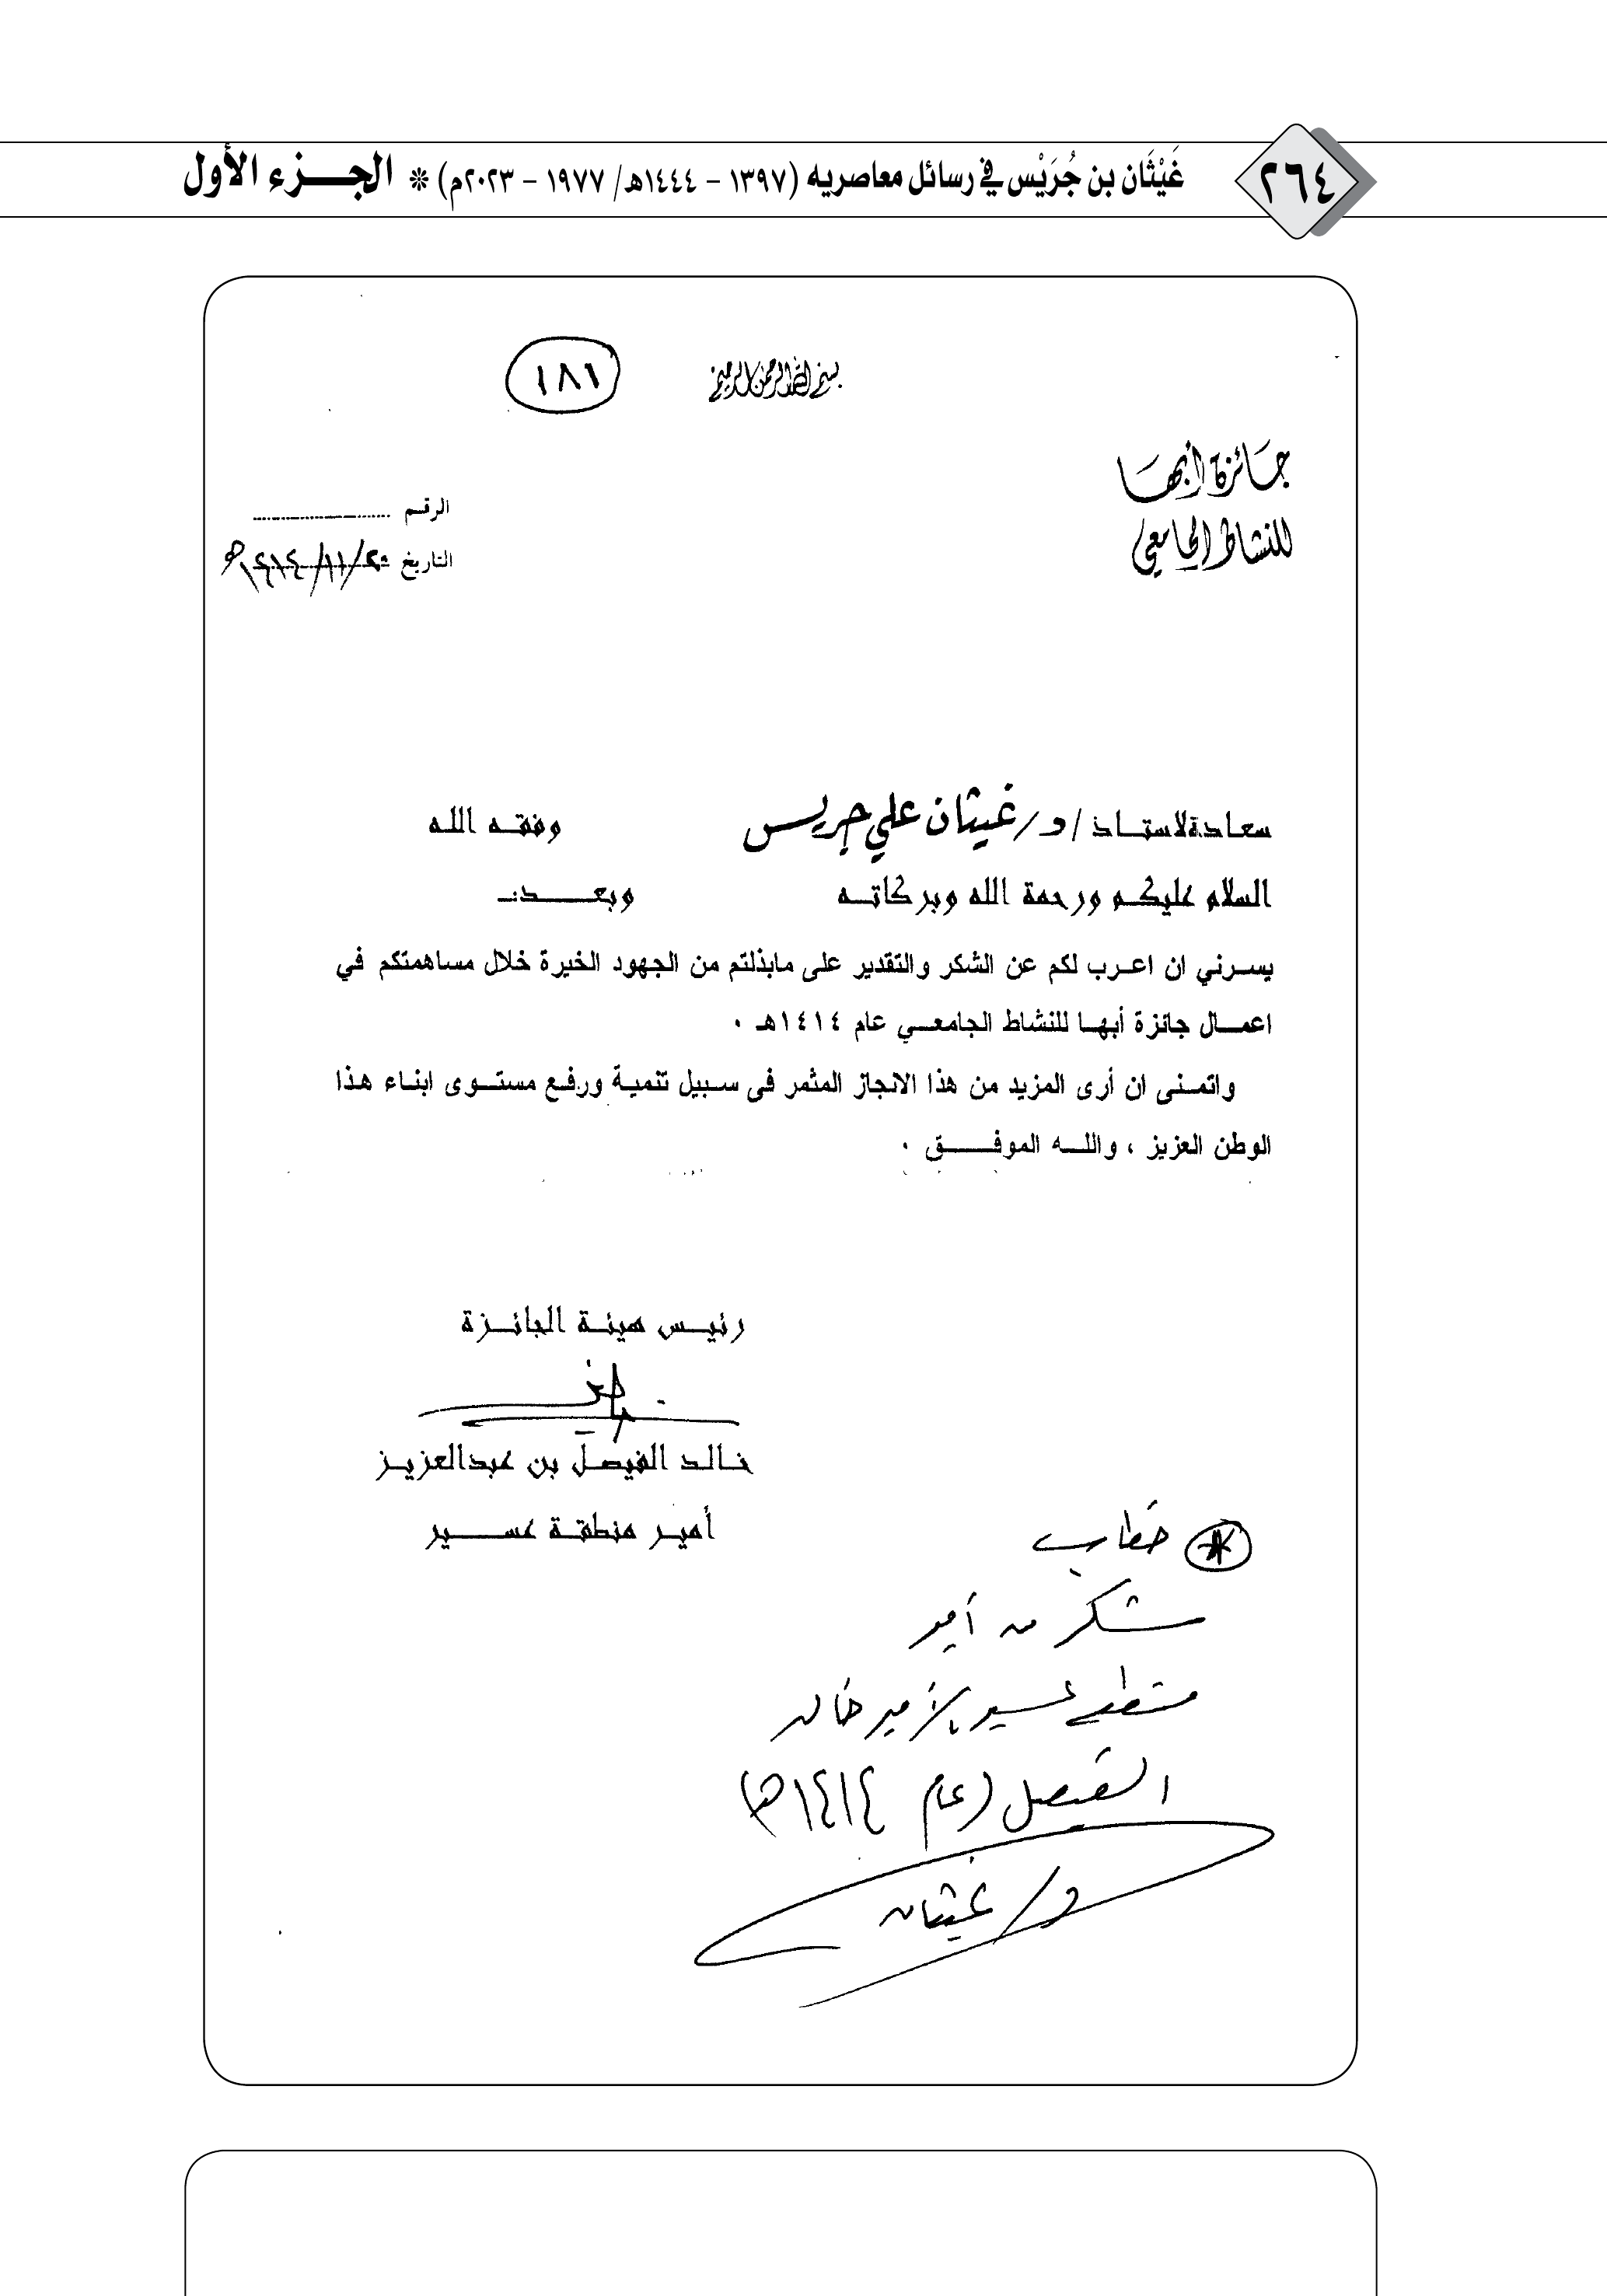 ٢٦٤
غَيْثَان بن جُرَيْس في رسائل معاصريه (١٣٩٧ - ١٤٤٤هـ/ ١٩٧٧ - ٢٠٢٣م) * الجــزء الأول
١٨١
بسم الله الرحمن الرحيم
جائزة أبها
للنشاط الجامعي
الرقم
التاريخ ٢٠/١١/١٤١٤هـ
سعادة الاستاذ / د/ غيثان علي جريس وفقه الله
السلام عليكم ورحمة الله وبركاته وبعد:
يسرني ان اعرب لكم عن الشكر والتقدير على مابذلتم من الجهود الخيرة خلال مساهمتكم في
اعمال جائزة أبها للنشاط الجامعي عام ١٤١٤هـ ٠
واتمنى ان أرى المزيد من هذا الانجاز المثمر فى سبيل تنمية ورفع مستوى ابناء هذا
الوطن العزيز ، والله الموفق ٠
رئيس هيئة الجائزة
خالد الفيصل بن عبدالعزيز
أمير منطقة عسير
* خطاب
شكر من أمير
منطقة عسير الأمير خالد
الفيصل (عام ١٤١٤هـ)
د/ غيثان